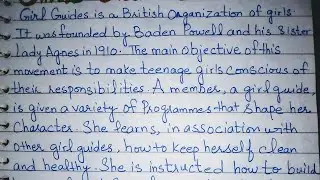 Girl Guides is a British Organization of girls.
It was founded by Baden Powell and his Sister
Lady Agnes in 1910. The main objective of this
movement is to make teenage girls conscious of
their responsibilities. A member, a girl guide,
is given a variety of Programmes that shape her
Character. She learns, in association with
other girl guides, how to keep herself clean
and healthy. She is instructed how to build